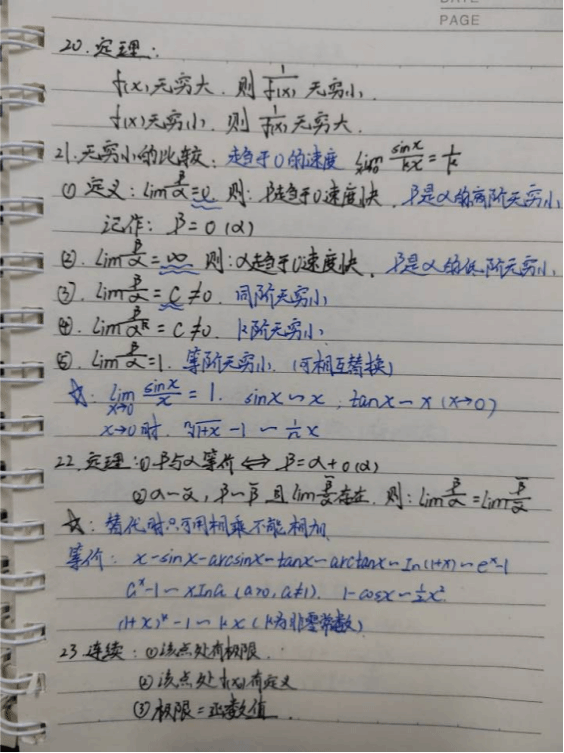 DATE
PAGE
20. 定理：
f(x)无穷大. 则 1/f(x) 无穷小.
f(x)无穷小. 则 1/f(x) 无穷大.
21. 无穷小的比较: 趋于0的速度 lim x→0 sinx/kx = 1/k
① 定义: lim β/α = 0 则: β趋于0速度快. β是α的高阶无穷小
记作: β = o(α)
②. lim β/α = ∞ 则: α趋于0速度快. β是α的低阶无穷小
③. lim β/α = C ≠ 0. 同阶无穷小
④. lim β/α^k = C ≠ 0. k阶无穷小
⑤. lim β/α = 1. 等阶无穷小. (可相互替换)
☆: lim x→0 sinx/x = 1. sinx ~ x ; tanx ~ x (x→0)
x→0时. ⁿ√1+x - 1 ~ 1/n x
22 定理: ① β与α等价 ⇔ β = α + o(α)
② α ~ α̅, β ~ β̅ 且 lim β̅/α̅ 存在. 则: lim β/α = lim β̅/α̅
☆: 替代时只可用相乘不能相加
等价: x ~ sinx ~ arcsinx ~ tanx ~ arctanx ~ In(1+x) ~ e^x-1
a^x-1 ~ xIna (a>0, a≠1). 1-cosx ~ 1/2 x²
(1+x)^k - 1 ~ kx (k为非零常数)
23 连续: ① 该点处有极限.
② 该点处f(x)有定义
③ 极限 = 函数值.